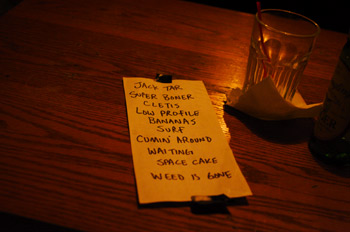 JACK TAR
SUPER BONER
CLETIS
LOW PROFILE
BANANAS
SURF
CUMIN' AROUND
WAITING
SPACE CAKE
WEED IS GONE